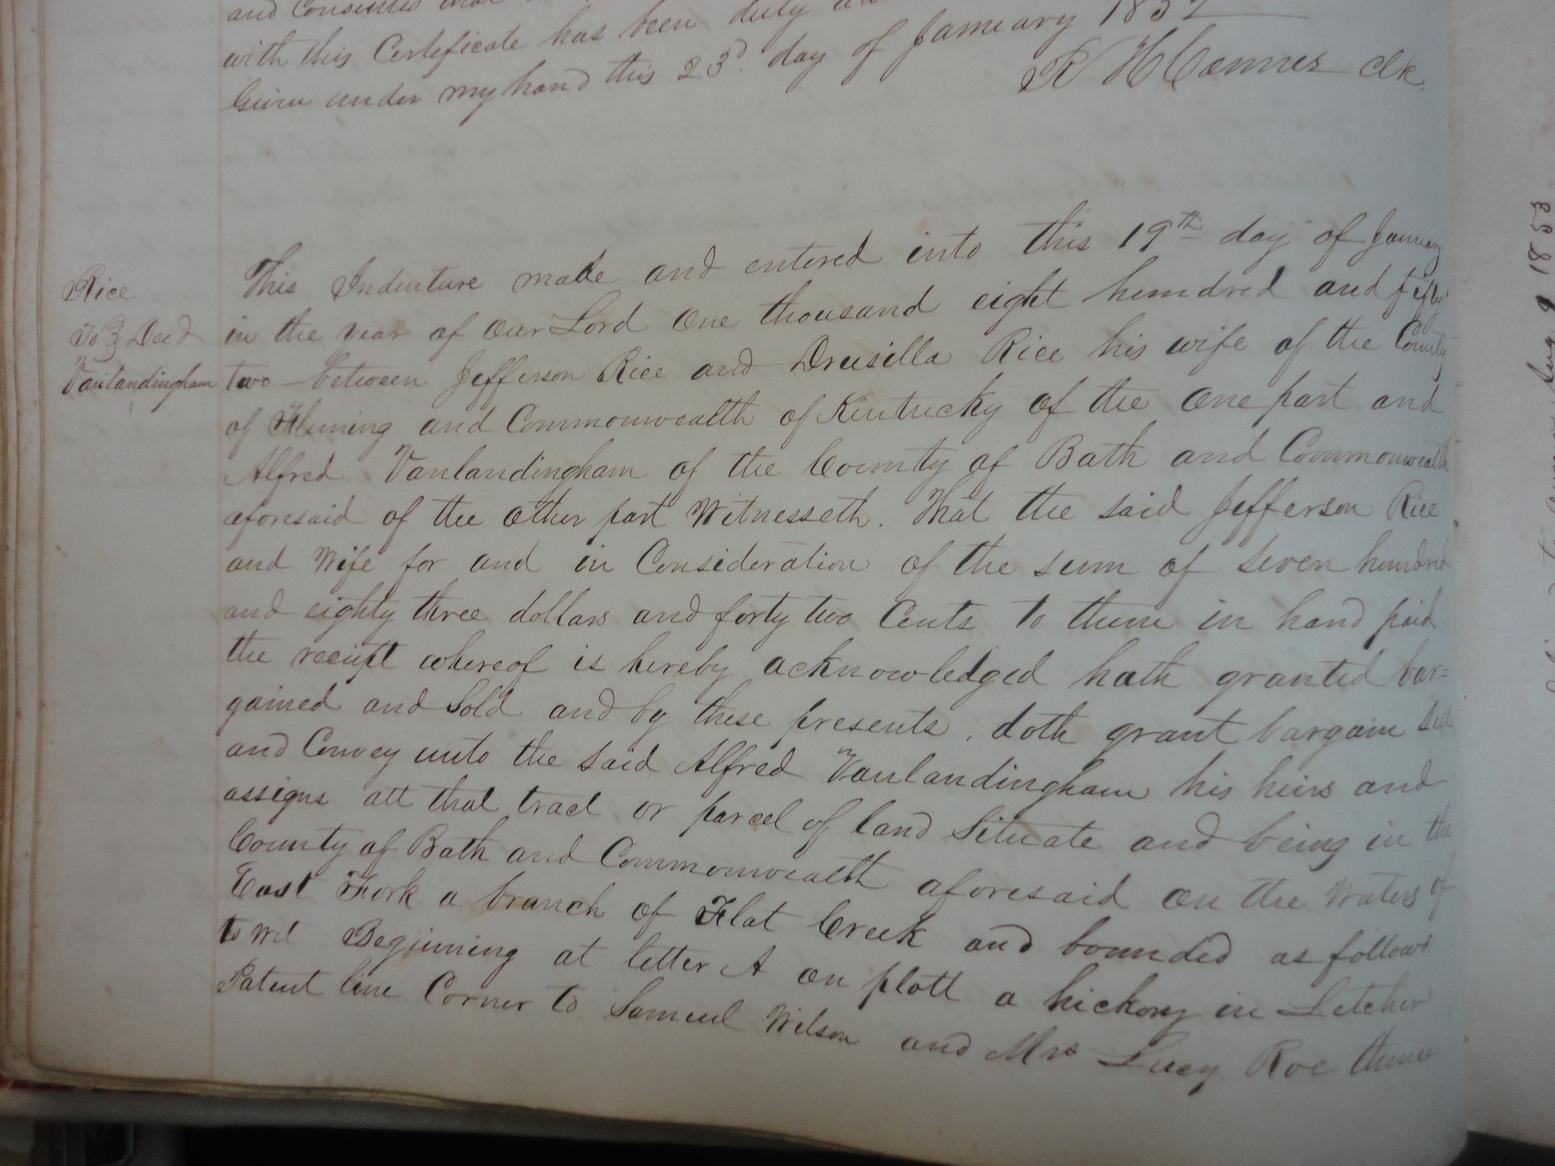 and
with this Certificate has been duly
Given under my hand this 23d. day of January 1852
R H Conner Clk.
Rice
To } Deed
Vanlandingham
This Indenture made and entered into this 19th day of January
in the year of our Lord One thousand eight hundred and fifty
two between Jefferson Rice and Drusilla Rice his wife of the County
of Fleming and Commonwealth of Kentucky of the One part and
Alfred Vanlandingham of the County of Bath and Commonwealth
aforesaid of the other part Witnesseth. That the said Jefferson Rice
and Wife for and in Consideration of the sum of Seven hundred
and eighty three dollars and forty two Cents to them in hand paid
the receipt whereof is hereby acknowledged hath granted bar=
gained and Sold and by these presents, doth grant bargain Sell
and Convey unto the said Alfred Vanlandingham his heirs and
assigns all that tract or parcel of land Situate and being in the
County of Bath and Commonwealth aforesaid on the Waters of
East Fork a branch of Flat Creek and bounded as follows
to wit Beginning at letter A on platt a hickory in Letchers
Patent line Corner to Samuel Wilson and Mrs Lucy Roe thence
Aug 9 1853